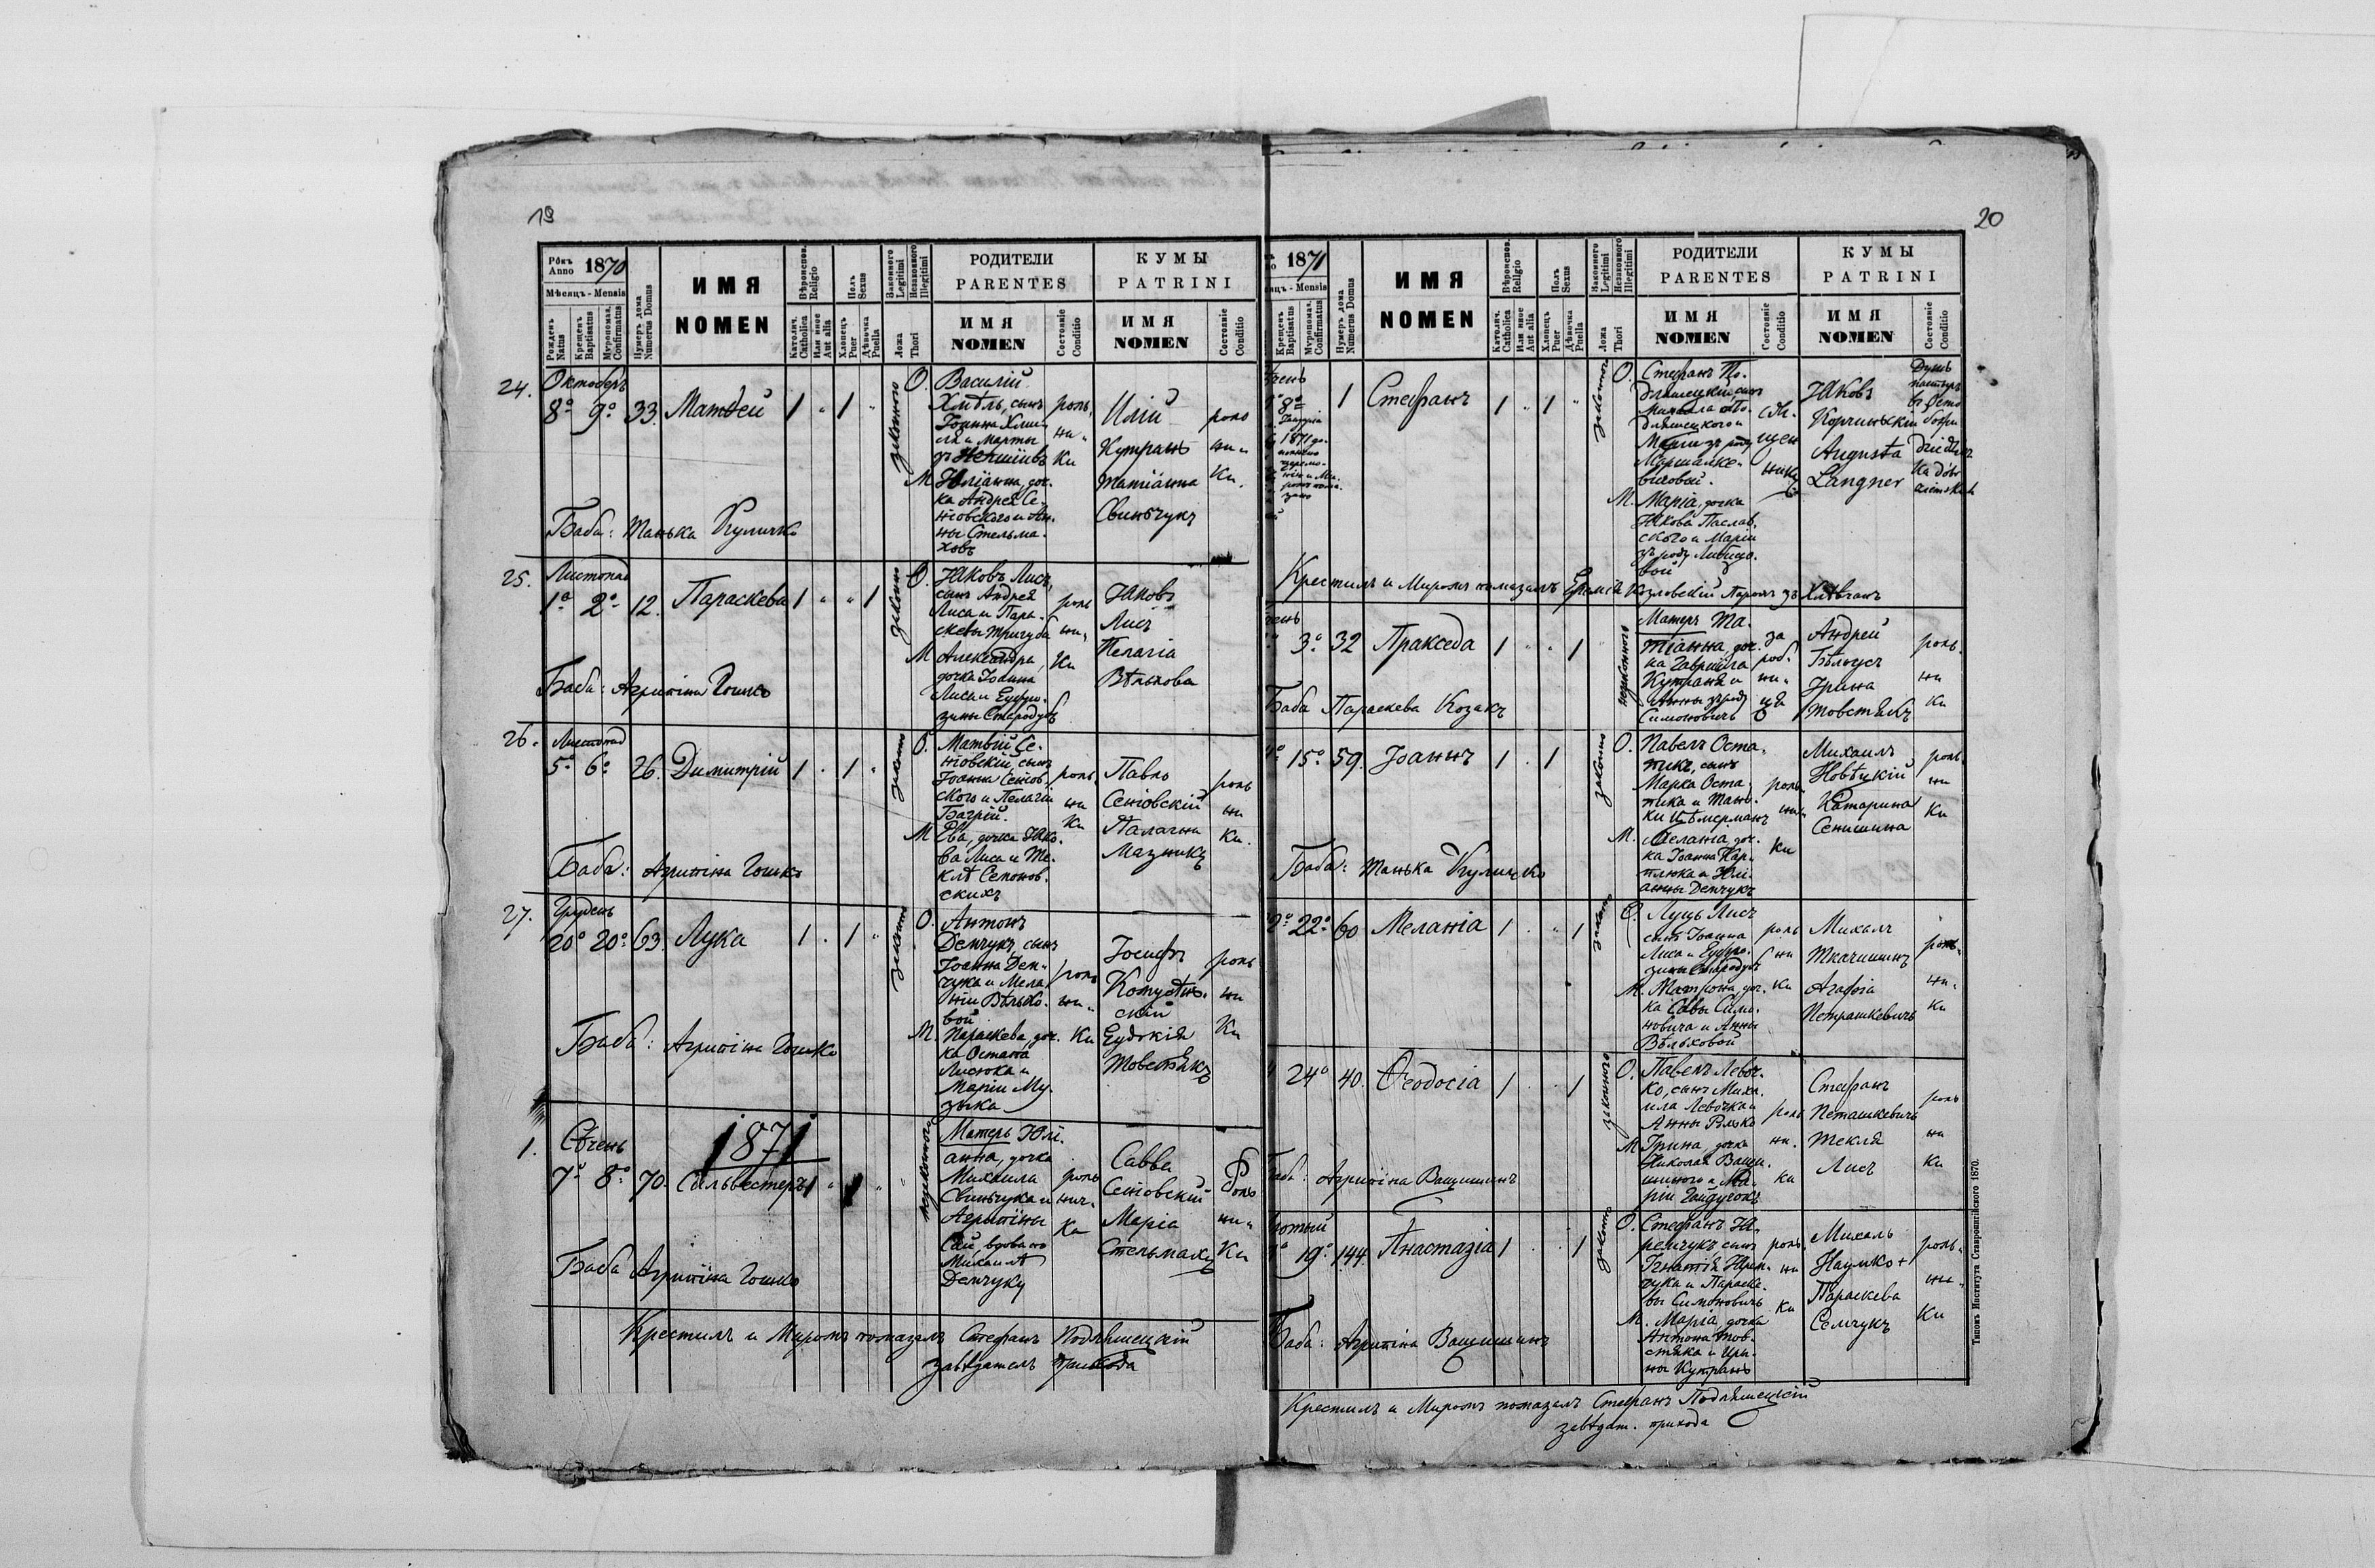 19
Рôкъ Anno 1870
Мѣсяцъ - Mensis
Рожденъ Natus
Крещенъ Baptisatus
Муропомаз. Confirmatus
Нумеръ дома Numerus Domus
ИМЯ
NOMEN
Вѣроиспов. Religio
Католич. Catholica
Или иное Aut alia
Полъ Sexus
Хлопецъ Puer
Дѣвочка Puella
Законного Legitimi
Незаконного Illegitimi
Ложа Thori
РОДИТЕЛИ
PARENTES
ИМЯ
NOMEN
Состояніе Conditio
КУМЫ
PATRINI
ИМЯ
NOMEN
Состояніе Conditio
24. Октоберъ
8º 9º 33. Матѳей 1 " 1 "
законного
О. Василій
Хмѣль, сынъ
Іоанна Хме-
ля и Марты
М Юліанна, доч.
ка Андрея Се-
нѣовского и Ан.
ны Стельма-
ховъ
рольники
Илій
Кутранъ
Татіанна
Свинчукъ
рольники.
Баба: Танька Куличко
25. Листопад
1º 2º 12. Параскева 1 " " 1
законно
О. Яковъ Лисъ,
сынъ Андрея
Лиса и Пара-
скевы Тригуба
М Александра,
дочка Іоанна
Лиса и Еуфро-
зины Стародубъ
рольники
Яковъ
Лисъ
Пелагія
Вѣлькова
Баба: Агрипина Гошко
26. Листопад
5º 6º 26. Димитрій 1 . 1 "
законно
О. Матвій Се-
нѣовскій, сынъ
Іоанна Сенѣов-
ского и Пелагіи
Багрій.
М Ева, дочка Яко-
ва Лиса и Те-
клѣ Семонов-
скихъ
рольники
Павло
Сенѣовскій
Палагна
Мазникъ
рольники.
Баба: Агрипина Гошко
27. Грудень
20º 20º 63. Лука 1 . 1 "
законно
О. Антонъ
Демчукъ, сынъ
Іоанна Дем-
чука и Мела-
ніи Вѣлько-
вой
М. Параскева, доч-
ка Остапа
Лисюка и
Маріи Му-
зыка
рольники
Іосифъ
скій
Еудокія
Товстякъ
рольники
Баба: Агрипіна Гошко
1871
1. Сѣчень
7º 8º 70. Сильвестеръ 1 " 1 " "
незаконного
Матерь Юлі-
анна, дочка
Михаила
Свинчука и
Агрипіны
Михаилѣ
Демчуку
рольничка
Савва
Сенѣовскій
Марія
Стельмахъ
рольники
Баба Агрипіна Гошко
Крестилъ и Миромъ помазалъ Стефанъ Подляшецкій
завѣдатель прихода
20
1871
Мѣсяцъ - Mensis
Крещенъ Baptisatus
Муропомаз. Confirmatus
Нумеръ дома Numerus Domus
ИМЯ
NOMEN
Вѣроиспов. Religio
Католич. Catholica
Или иное Aut alia
Полъ Sexus
Хлопецъ Puer
Дѣвочка Puella
Законного Legitimi
Незаконного Illegitimi
Ложа Thori
РОДИТЕЛИ
PARENTES
ИМЯ
NOMEN
Состояніе Conditio
КУМЫ
PATRINI
ИМЯ
NOMEN
Состояніе Conditio
8º 1 Стефанъ 1 " 1 "
законного
О. Стефанъ По-
дляшецкій сынъ
Михаила По-
дляшецкого и
Маріи зъ роду
Маршалке-
вичовой.
М. Марія, дочка
Якова Паслав-
ского и Маріи
зъ роду
Яковъ
Корчинскій
Augusta
Langner
Крестилъ и Миромъ помазалъ Еремія Козловскій Парохъ зъ Хлѣвчанъ
3º 32 Пракседа 1 . . 1
незаконного
Матерь Та-
тіанна, доч-
ка Гавриила
Кутраня и
Анны зъ роду
Симоновичъ
заробница
Андрей
Бѣлоусъ
Ірина
Товстякъ
рольники
Баба Параскева Козакъ
15º 59. Іоаннъ 1 . 1
законно
О. Павелъ Оста-
пикъ, сынъ
Марка Оста-
пика и Тань-
ки
М. Меланія, доч-
ка Іоанна Кар-
пюка и Юлі-
анны Демчукъ
рольники
Михаилъ
Новѣцкій
Катарина
Сенишина
рольники
Баба: Танька Куличко
22º 60 Меланія 1 . " 1
законно
О. Луць Лисъ
сынъ Іоанна
Лиса и Еуфро-
зины Стародубъ
М. Матрона, доч-
ка Савы Симо-
новича и Анны
Вѣльковой
рольники
Михаилъ
Ткачишинъ
Агафія
Петрашкевичъ
рольники
24º 40. Ѳеодосіа 1 . . 1
законного
О. Павелъ Левоч-
ко, сынъ Миха-
ила Левочка и
Анны Рылько
М Ірина, дочка
Николая Ващи-
шиного и Ма-
ріи Гайдучокъ
рольники
Стефанъ
Петашкевичъ
Текля
Лисъ
рольники
Баба: Агрипіна Ващишинъ
19º 144. Анастазіа 1 . . 1
законно
О. Стефанъ Я-
ремчукъ сынъ
Ігнатія Ярем-
чука и Параске-
вы Симоновичъ
М. Марія, дочка
Антона Тов-
стяка и Ири-
ны Кутрань
рольники
Михаль
Наумко +
Параскева
Семчукъ
рольники
Баба: Агрипіна Ващишинъ
Крестилъ и Миромъ помазалъ Стефанъ Подляшецкій
завѣдат. прихода
Типомъ Института Ставропигійского 1870.